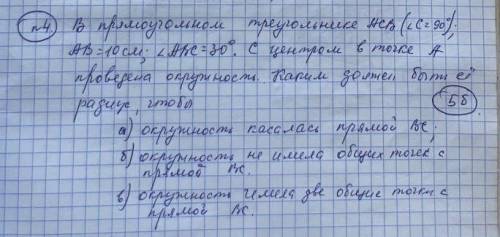 п4. В прямоугольном треугольнике АСВ (∠С=90°):
АВ=10см; ∠АВС=30°. С центром в точке А
проведена окружность. Каким должен быть её
радиус, чтобы
5б.
а) окружность касалась прямой ВС;
б) окружность не имела общих точек с
прямой ВС.
в) окружность имела две общие точки с
прямой ВС.